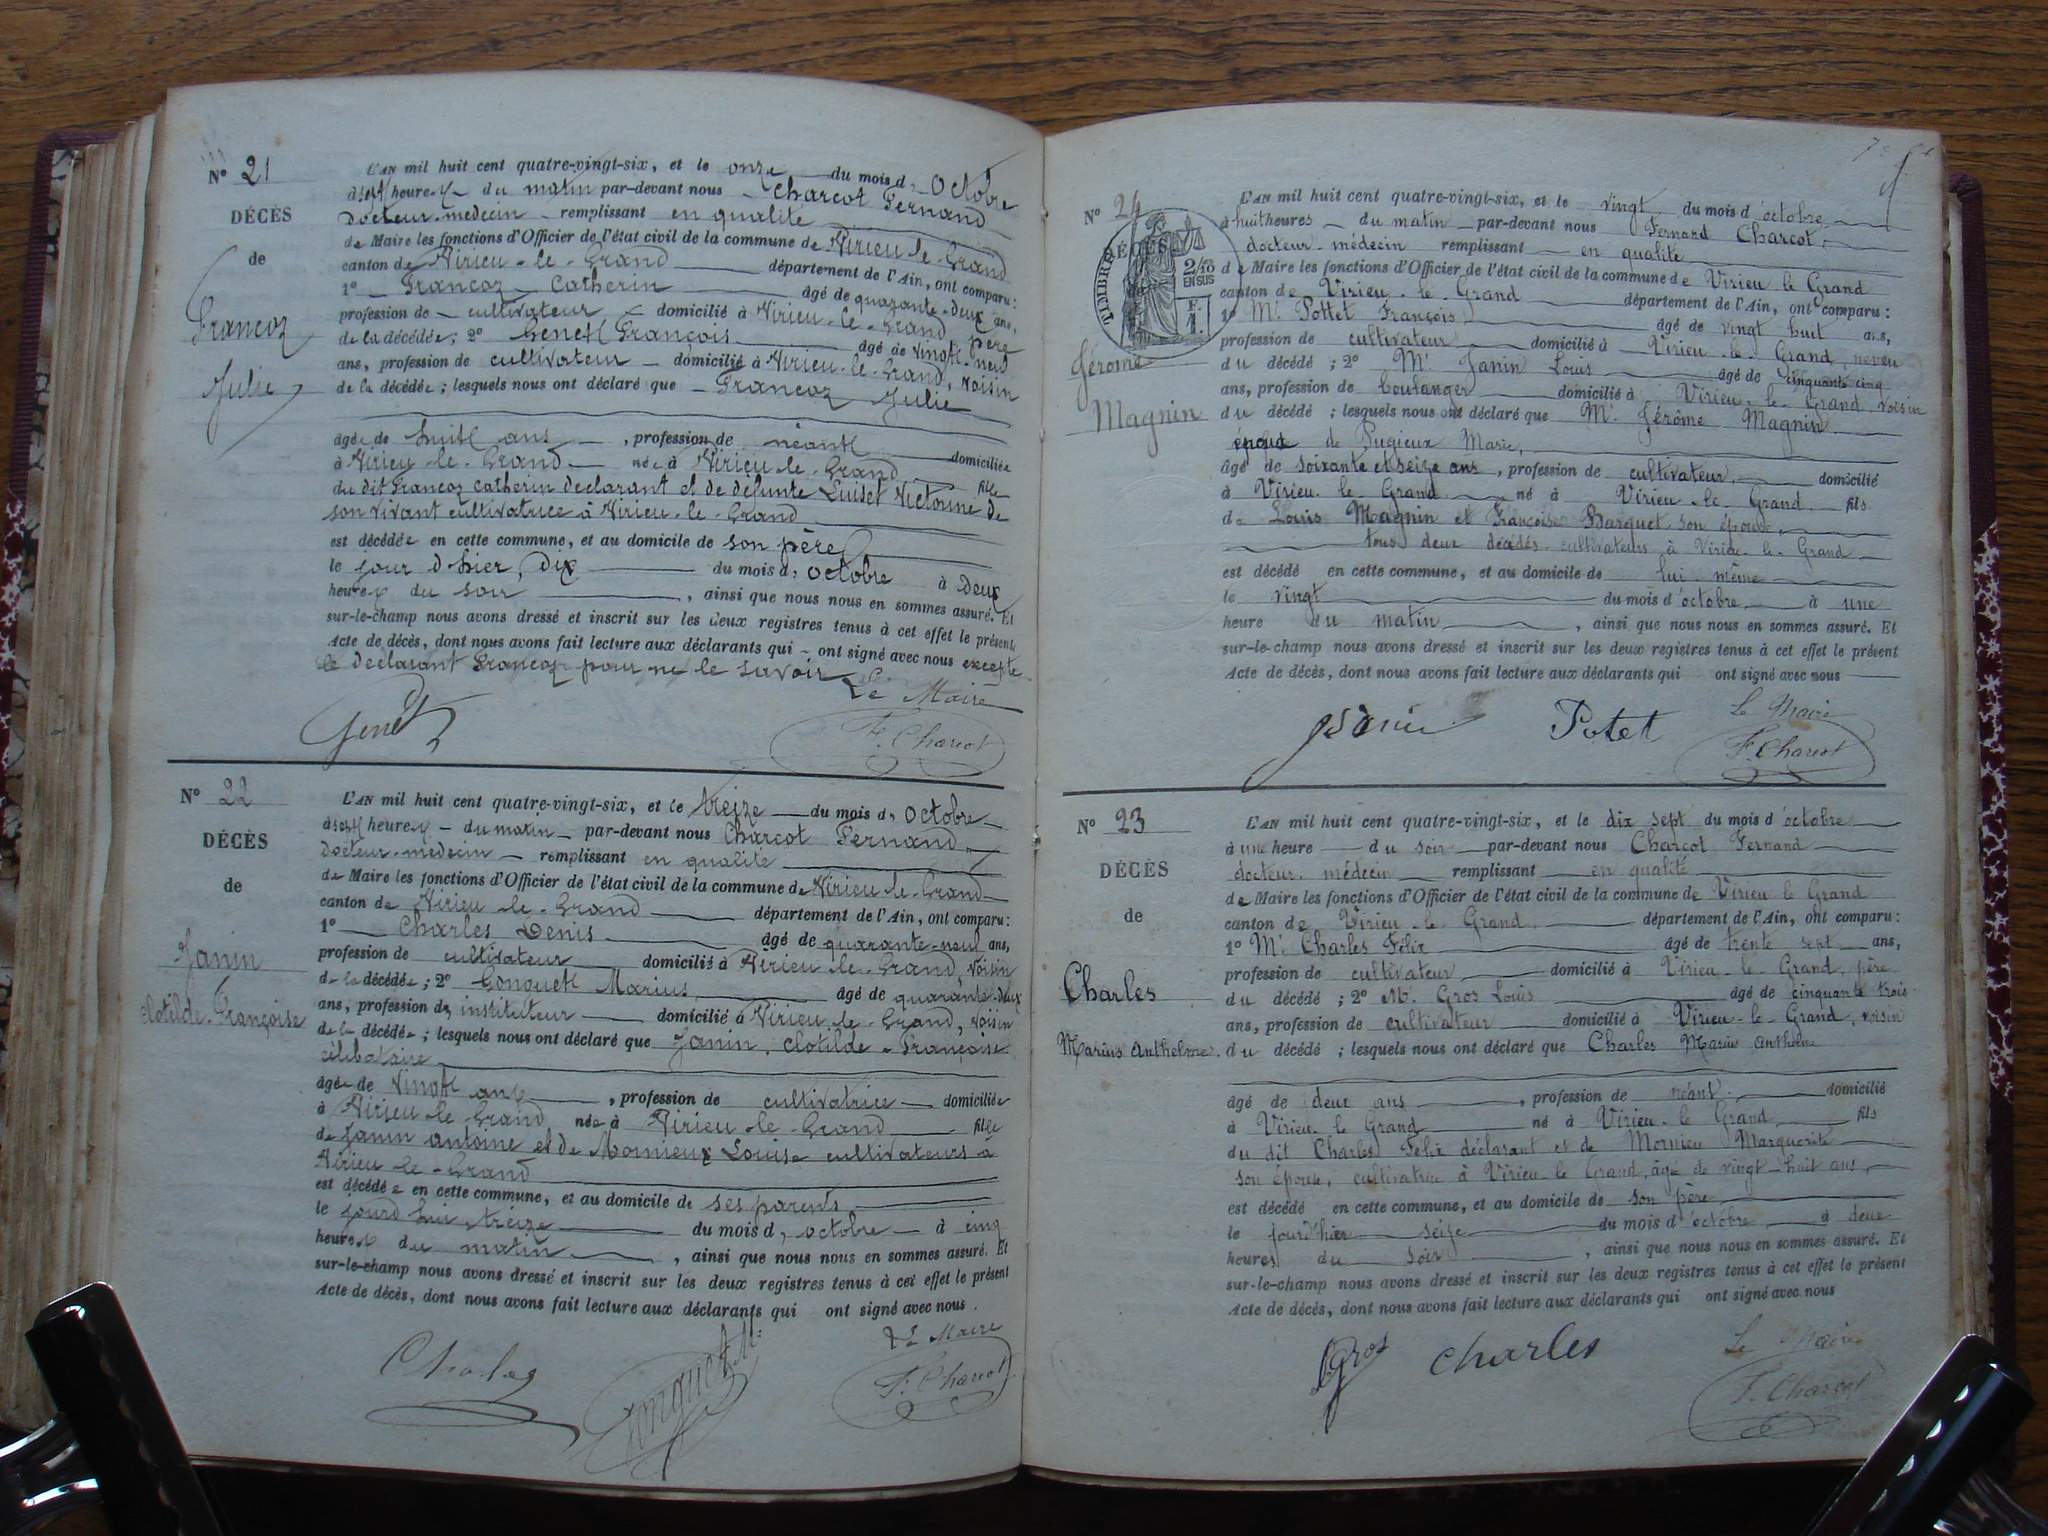 N° 21
DÉCÈS
de
Francoz
Julie
L'AN mil huit cent quatre-vingt-six, et le onze du mois d'Octobre
à sept heures du matin par-devant nous Charcot Fernand
Docteur-medecin remplissant en qualité
de Maire les fonctions d'Officier de l'état civil de la commune de Virieu-le-Grand
canton de Virieu-le-Grand département de l'Ain, ont comparu :
1° Francoz Catherin âgé de quarante-deux ans,
profession de cultivateur domicilié à Virieu-le-Grand, père
de la décédée ; 2° Genett François âgé de vingt-neuf
ans, profession de cultivateur domicilié à Virieu-le-Grand, voisin
de la décédée ; lesquels nous ont déclaré que Francoz Julie
âgée de huit ans, profession de néant domiciliée
à Virieu-le-Grand née à Virieu-le-Grand fille
du dit Francoz Catherin declarant et de défunte Luiset Victorine de
son vivant cultivatrice à Virieu-le-Grand
est décédée en cette commune, et au domicile de son père
le jour d'hier, dix du mois d'octobre à deux
heures du soir, ainsi que nous nous en sommes assuré. Et
sur-le-champ nous avons dressé et inscrit sur les deux registres tenus à cet effet le présent
Acte de décès, dont nous avons fait lecture aux déclarants qui ont signé avec nous excepté
le declarant Francoz pour ne le savoir
Le Maire
Genett
F. Charcot
N° 22
DÉCÈS
de
Janin
Clotilde-Françoise
L'AN mil huit cent quatre-vingt-six, et le treize du mois d'octobre
à sept heures du matin par-devant nous Charcot Fernand
Docteur-medecin remplissant en qualité
de Maire les fonctions d'Officier de l'état civil de la commune de Virieu-le-Grand
canton de Virieu-le-Grand département de l'Ain, ont comparu :
1° Charles Denis âgé de quarante-neuf ans,
profession de cultivateur domicilié à Virieu-le-Grand, voisin
de la décédée ; 2° Gonguett Marius âgé de quarante-deux
ans, profession de instituteur domicilié à Virieu-le-Grand, voisin
de la décédée ; lesquels nous ont déclaré que Janin, Clotilde-Françoise
célibataire
âgée de vingt ans, profession de cultivatrice domiciliée
à Virieu-le-Grand née à Virieu-le-Grand fille
de Janin antoine et de Mornieux Louise cultivateurs à
Virieu-le-Grand
est décédée en cette commune, et au domicile de ses parents
le jourd'hui treize du mois d'octobre à cinq
heures du matin, ainsi que nous nous en sommes assuré. Et
sur-le-champ nous avons dressé et inscrit sur les deux registres tenus à cet effet le présent
Acte de décès, dont nous avons fait lecture aux déclarants qui ont signé avec nous.
Le Maire
Charles
Gonguet M.
F. Charcot
N° 24
DÉCÈS
TIMBRE
2/10 EN SUS
F. 1.
Jérome
Magnin
L'AN mil huit cent quatre-vingt-six, et le vingt du mois d'octobre
à huit heures du matin par-devant nous Fernand Charcot,
docteur-médecin remplissant en qualité
de Maire les fonctions d'Officier de l'état civil de la commune de Virieu le Grand
canton de Virieu-le-Grand département de l'Ain, ont comparu :
1° Mr Pottet François âgé de vingt huit ans,
profession de cultivateur domicilié à Virieu-le-Grand, neveu
du décédé ; 2° Mr Janin Louis âgé de cinquante cinq
ans, profession de boulanger domicilié à Virieu-le-Grand, voisin
du décédé ; lesquels nous ont déclaré que Mr Jérôme Magnin
époux de Pugieux Marie,
âgé de soixante et seize ans, profession de cultivateur, domicilié
à Virieu-le-Grand né à Virieu-le-Grand fils
de Louis Magnin et Françoise Barquet son épouse,
tous deux décédés cultivateurs à Virieu-le-Grand
est décédé en cette commune, et au domicile de lui même
le vingt du mois d'octobre à une
heure du matin, ainsi que nous nous en sommes assuré. Et
sur-le-champ nous avons dressé et inscrit sur les deux registres tenus à cet effet le présent
Acte de décès, dont nous avons fait lecture aux déclarants qui ont signé avec nous
Le Maire
Janin
Potet
F. Charcot
N° 23
DÉCÈS
de
Charles
Marius Anthelme.
L'AN mil huit cent quatre-vingt-six, et le dix sept du mois d'octobre
à une heure du soir par-devant nous Charcot Fernand
docteur-médecin remplissant en qualité
de Maire les fonctions d'Officier de l'état civil de la commune de Virieu le Grand
canton de Virieu-le-Grand, département de l'Ain, ont comparu :
1° Mr Charles Félix âgé de trente sept ans,
profession de cultivateur domicilié à Virieu-le-Grand, père
du décédé ; 2° M. Gros Louis âgé de cinquante trois
ans, profession de cultivateur domicilié à Virieu-le-Grand, voisin
du décédé ; lesquels nous ont déclaré que Charles Marius Anthelme
âgé de deux ans, profession de néant, domicilié
à Virieu-le-Grand né à Virieu-le-Grand fils
du dit Charles Félix déclarant et de Mornieu Marguerite
son épouse, cultivatrice à Virieu-le-Grand, âgé de vingt-huit ans,
est décédé en cette commune, et au domicile de son père
le jour d'hier seize du mois d'octobre à deux
heures du soir, ainsi que nous nous en sommes assuré. Et
sur-le-champ nous avons dressé et inscrit sur les deux registres tenus à cet effet le présent
Acte de décès, dont nous avons fait lecture aux déclarants qui ont signé avec nous
Le Maire
Gros
Charles
F. Charcot